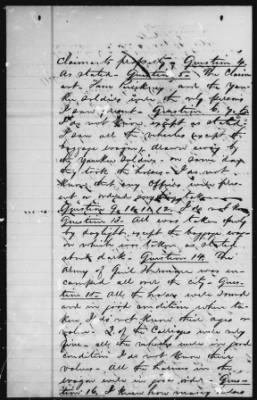 Claimants property - Question 4.
As stated - Question 5 - The Claim
ant. Sam and the Yan
kee soldiers were the only persons
I saw present - Question 6. Yes
I do not know except as stated -
I saw all the vehicles except the
baggage wagon, drawn away by
the Yankee Soldiers - on same day
they took the horses - I do not
know that any Officers were pres
ent or ordered
Question 9, 10, 11, 12. I do not know
Question 13. All was taken
by daylight, except the baggage wag
on which was taken as stated
dark - Question 14. The
Army of Genl Sherman was en-
camped all over the city - Ques-
tion 15 - All the horses were sound
and in good condition when ta-
ken I do not know their ages or
value - 2 of the Carriages were very
fine - all the vehicles were in good
condition I do not know their
values - All the harness in the
wagon were in good order - Ques-
tion 16. I know how many horses